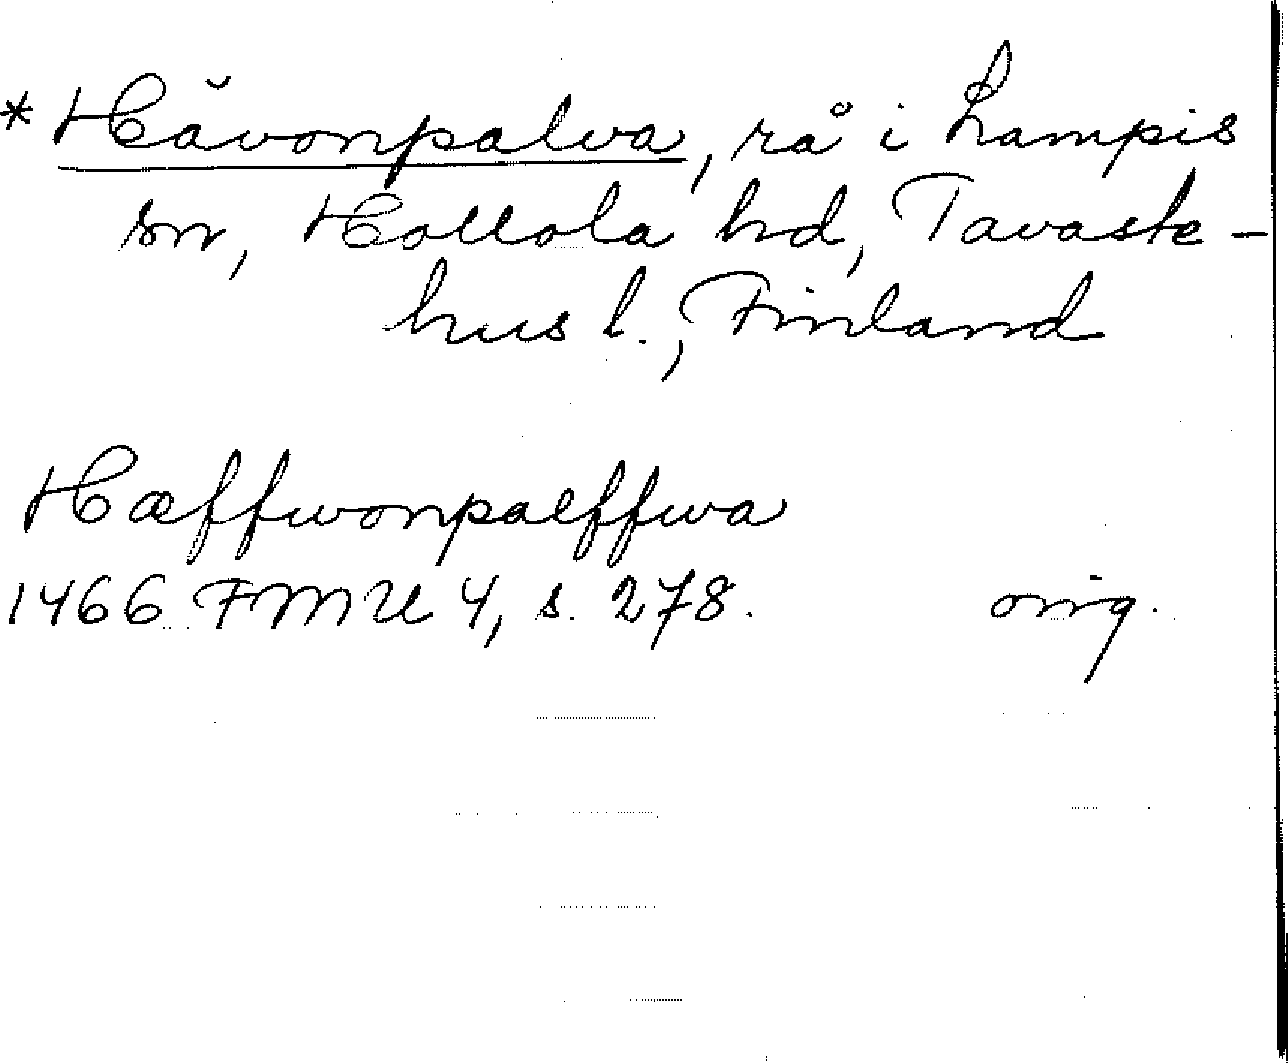 * Hävonpalva, rå i Lampis
sn, Hollola hd, Tavaste-
hus l., Finland
Hæffwonpaeffwa
1466 FMU 4, s. 278. orig.